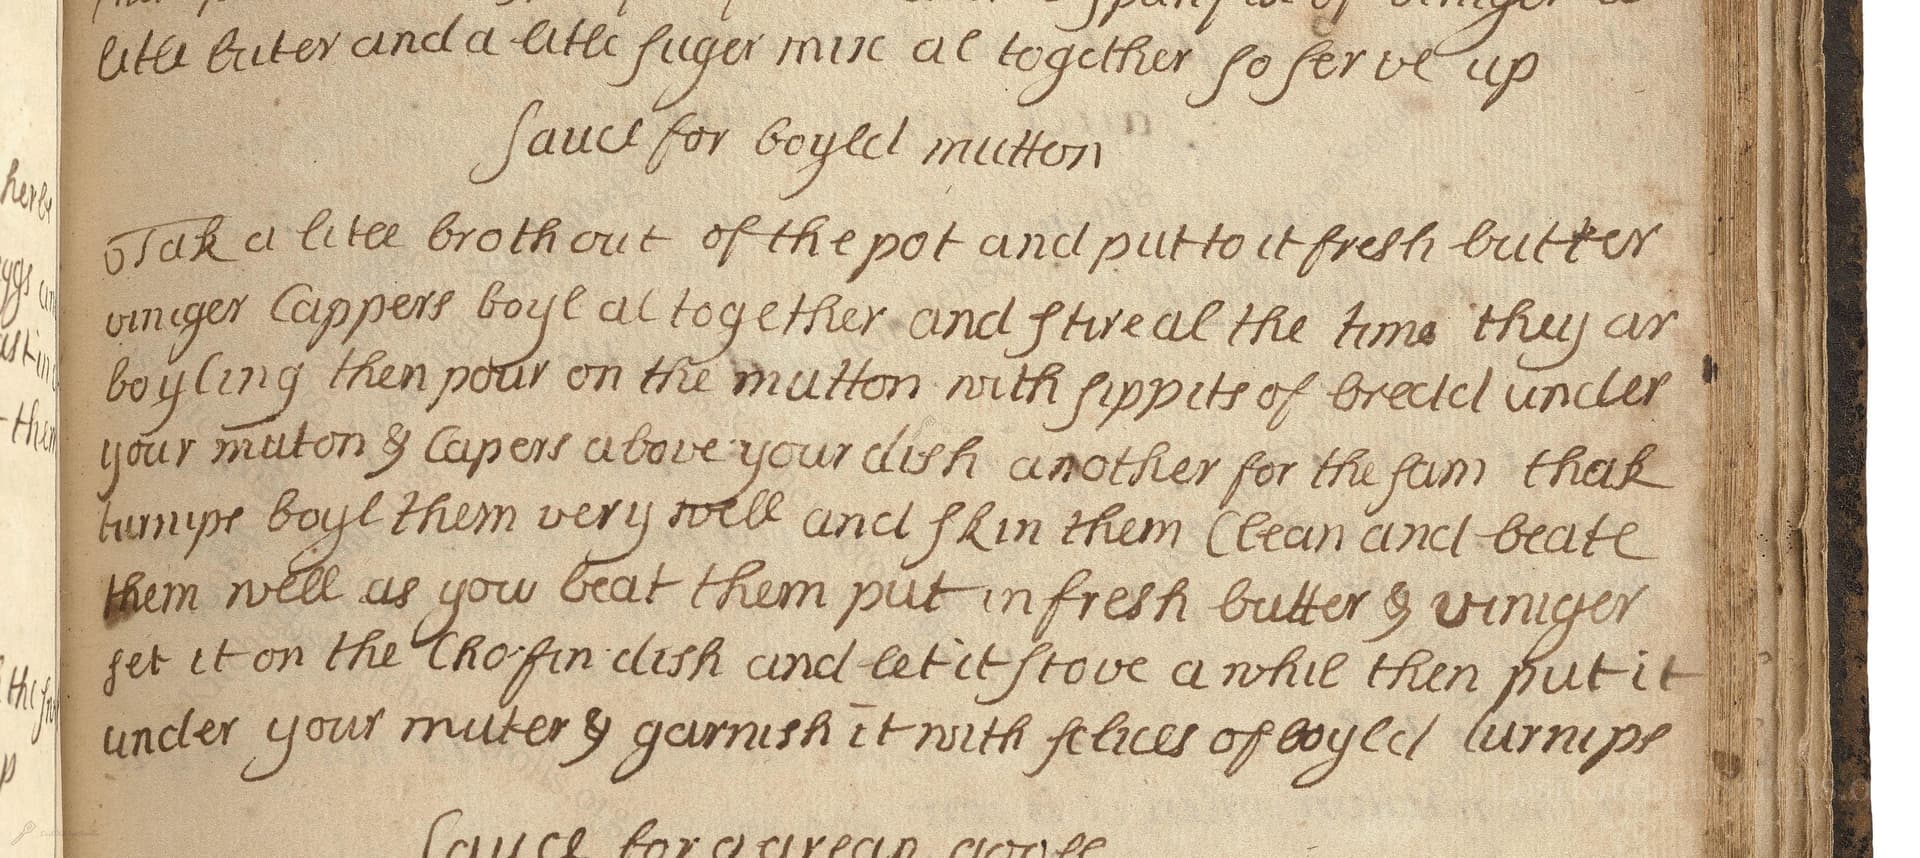 litle buter and a litle suger mix al together so serve up
sauce for boyled mutton
Tak a litle broth out of the pot and put to it fresh butter
viniger Cappers boyl al together and stire al the time they ar
boyling then pour on the mutton with sippits of bredd under
your muton & Capers above your dish another for the sam thak
turnips boyl them very well and skin them Clean and beate
them well as you beat them put in fresh butter & viniger
set it on the Chofin dish and let it stove a whil then put it
under your muter & garnish it with slices of boyld turnips
sauce for a grean goose